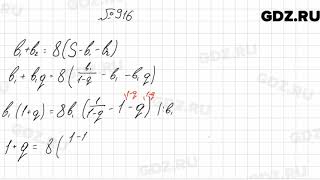 GDZ.RU
№916
b₁+b₂ = 8(S-b₁-b₂)
b₁ + b₁q = 8(b₁/(1-q) - b₁ - b₁q)
b₁(1+q) = 8b₁(1/(1-q) - 1 - q) |:b₁
1+q = 8(1-1
GDZ.RU